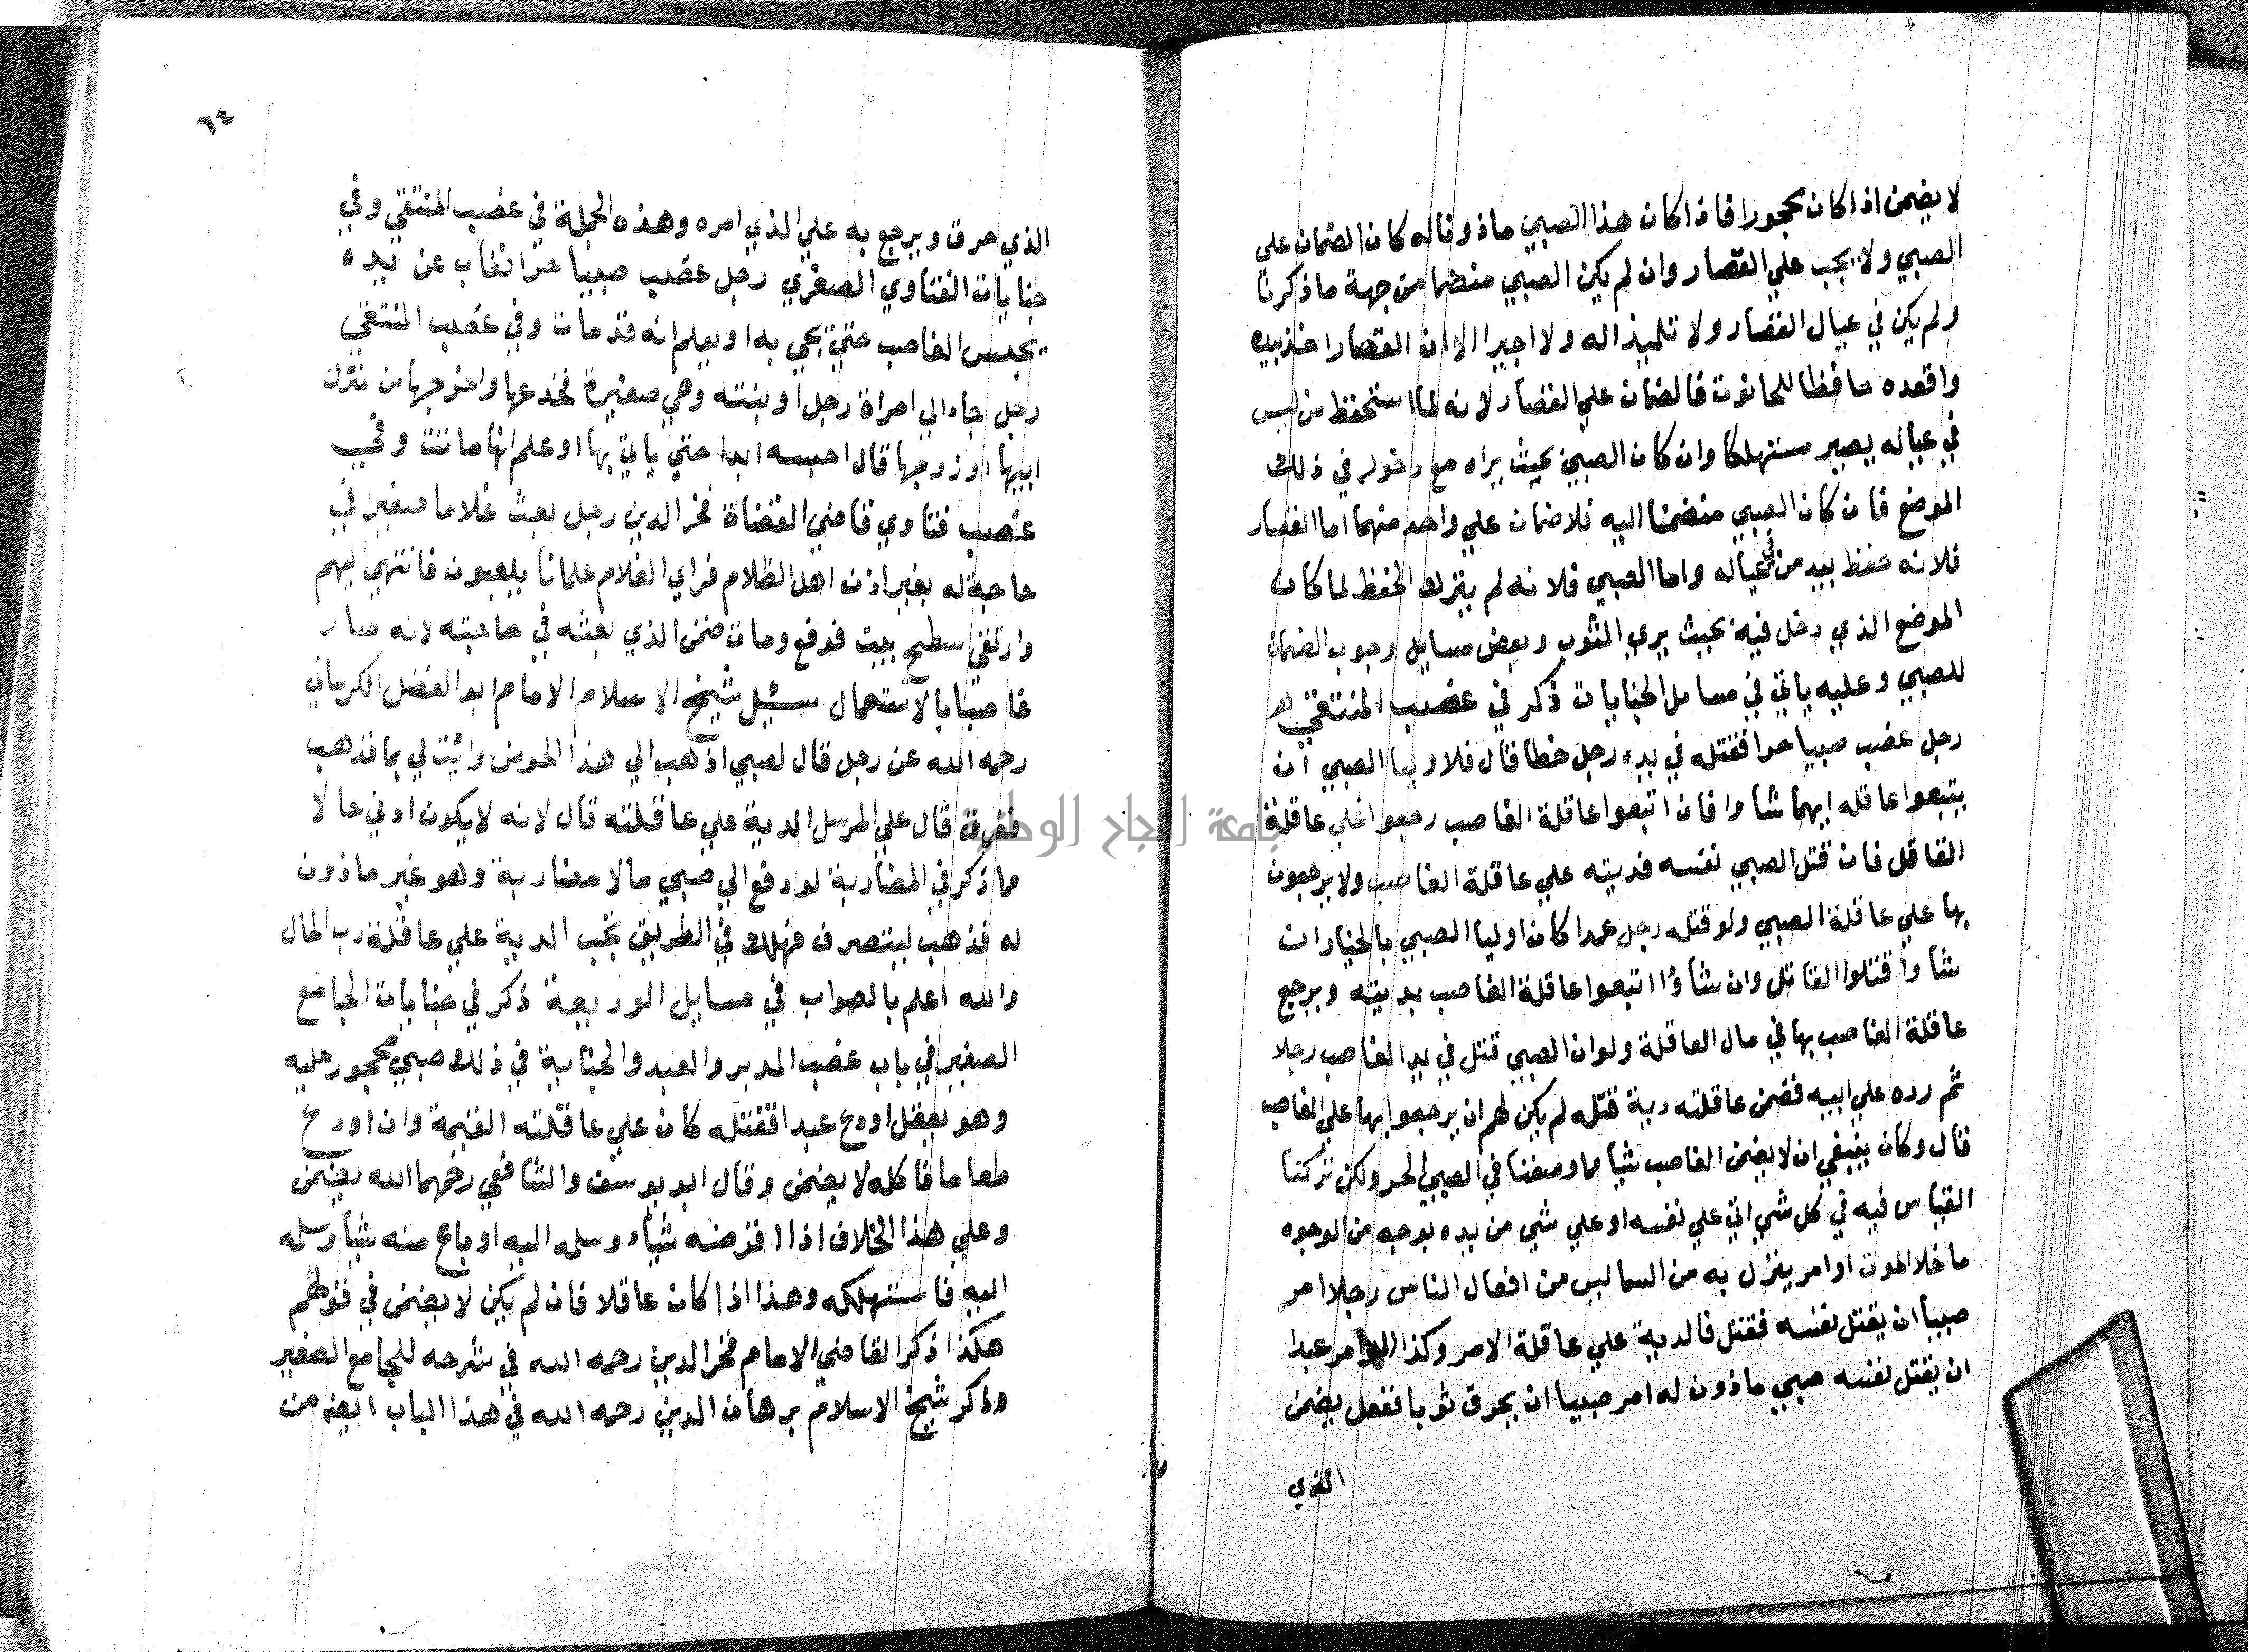 لا يضمن اذا كان محجورا فاذا كان هذا الصبي ماذونا له كان الضمان علي
الصبي ولا يجب علي القصار وان لم يكن الصبي منضما من جهة ما ذكرنا
ولم يكن في عيال القصار ولا تلميذا له ولا اجيرا الا ان القصار اخذ بيده
واقعده حافظا للحانوت فالضمان علي القصار لانه لما استحفظ من ليس
في عياله يصير مستهلكا وان كان الصبي بحيث يراه مع دخوله في ذلك
الموضع فان كان الصبي منضما اليه فلا ضمان علي واحد منهما اما القصار
فلانه حفظ بيد من في عياله واما الصبي فلانه لم يترك الحفظ لما كان
الموضع الذي دخل فيه بحيث يري الثوب وبعض مسايل وجوب الضمان
للصبي وعليه ياتي في مسايل الجنايات ذكر في غصب المنتقي
رجل غصب صبيا حرا فقتله في يده رجل خطا قال فلاوليا الصبي ان
يتبعوا عاقله ايهما شاوا فان اتبعوا عاقلة الغاصب رجعوا علي عاقلة
القاتل فان قتل الصبي نفسه فديته علي عاقلة الغاصب ولا يرجعون
بها علي عاقلة الصبي ولو قتله رجل عمدا كان اوليا الصبي بالخيار ان
شاوا قتلوا القاتل وان شاؤا اتبعوا عاقلة الغاصب بديته ويرجع
عاقلة الغاصب بها في مال العاقلة ولو ان الصبي قتل في يد الغاصب رجلا
ثم رده علي ابيه فضمن عاقلته دية قتله لم يكن لهم ان يرجعوا بها علي الغاصب
قال وكان ينبغي ان لا يضمن الغاصب شيا مما وصفنا في الصبي الحر ولكن تركنا
القياس فيه في كل شي اتي علي نفسه او علي شي من يده بوجه من الوجوه
ما خلا الموت او امر ينزل به من السما ليس من افعال الناس رجلا امر
صبيا ان يقتل نفسه فقتل فالدية علي عاقلة الامر وكذا امر عبدا
ان يقتل نفسه صبي ماذون له امر صبيا ان يحرق ثوبا ففعل يضمن
الذي
٦٤
الذي حرق ويرجع به علي الذي امره وهذه الجملة في غصب المنتقي وفي
جنايات الفتاوي الصغري رجل غصب صبيا حرا فغاب عن يده
يحبس الغاصب حتي يجي به او يعلم انه قد مات وفي غصب المنتقي
رجل جاء الي امراة رجل او بنته وهي صغيرة فخدعها واخرجها من منزل
ابيها او زوجها قال احبسه ابدا حتي ياتي بها او علم انها ماتت وفي
غصب فتاوي قاضي القضاة فخر الدين رجل بعث غلاما صغير في
حاجة له بغير اذن اهل الغلام فراي الغلام غلمانا يلعبون فانتهي اليهم
وارتقي سطح بيت فوقع ومات ضمن الذي بعثه في حاجته لانه صار
غاصبا بالاستعمال سئيل شيخ الاسلام الامام ابو الفضل الكرماني
رحمه الله عن رجل قال لصبي اذهب الي هذا الحوض وائت لي بما فذهب
فغرق قال علي المرسل الدية علي عاقلته قال لانه لا يكون ادني حالا
مما ذكر في المضاربة لو دفع الي صبي مالا مضاربة وهو غير ماذون
له فذهب ليتصرف فهلك في الطريق تجب الدية علي عاقلة رب المال
والله اعلم بالصواب في مسايل الوديعة ذكر في جنايات الجامع
الصغير في باب غصب المدبر والعبد والجناية في ذلك صبي محجور عليه
وهو يعقل اودع عبدا فقتله كان علي عاقلته القيمة وان اودع
طعاما فاكله لا يضمن وقال ابو يوسف والشافعي رحمهما الله يضمن
وعلي هذا الخلاف اذا اقرضه شياء وسلمه اليه او باع منه شيا وسلمه
اليه فاستهلكه وهذا اذا كان عاقلا فان لم يكن لا يضمن في قولهم
هكذا ذكر القاضي الامام فخر الدين رحمه الله في شرحه للجامع الصغير
وذكر شيخ الاسلام برهان الدين رحمه الله في هذا الباب ايضا من
جامعة النجاح الوطنية